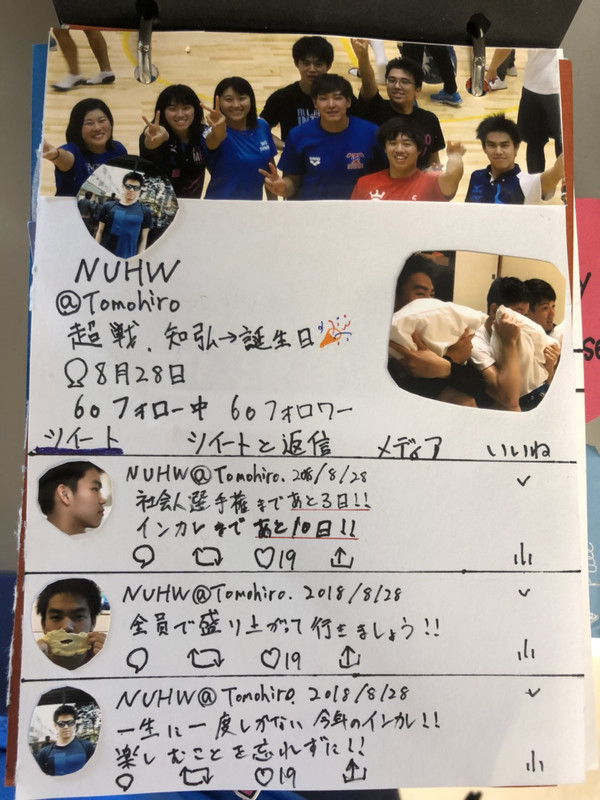 NUHW
@Tomohiro
超戦、知弘→誕生日
8月28日
60フォロー中 60フォロワー
ツイート ツイートと返信 メディア いいね
NUHW@Tomohiro. 2018/8/28
社会人選手権まであと3日!!
インカレまであと10日!!
19
NUHW@Tomohiro. 2018/8/28
全員で盛り上がって行きましょう!!
19
NUHW@Tomohiro. 2018/8/28
一生に一度しかない今年のインカレ!!
楽しむことを忘れずに!!
19